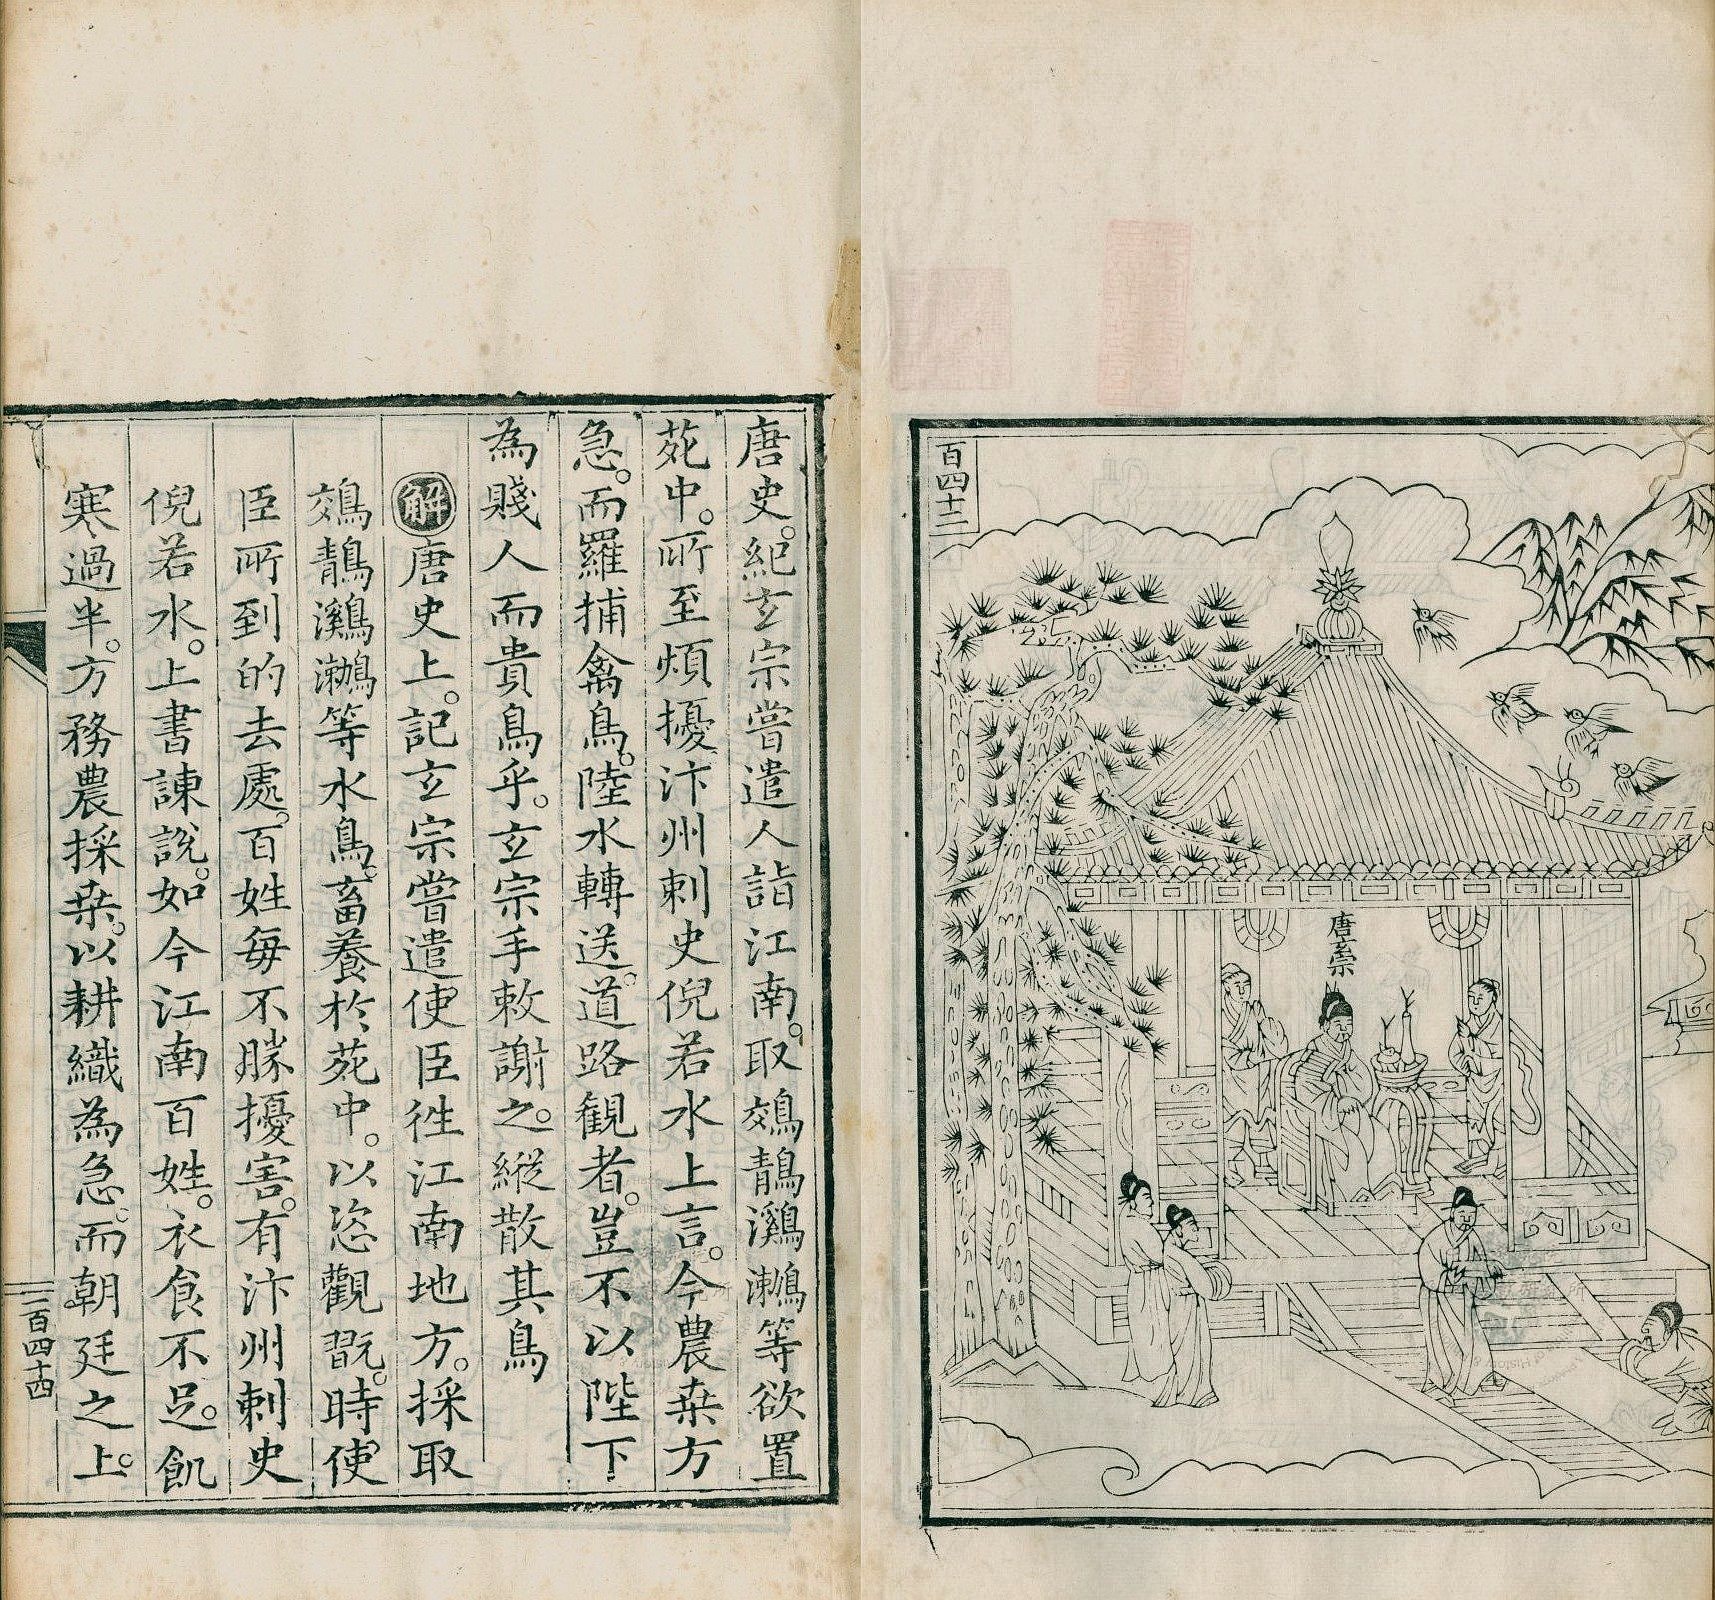 百四十二
唐玄宗
唐史。紀玄宗嘗遣人詣江南。取鵁鶄鸂鷘等欲置
苑中。所至煩擾汴州刺史倪若水。上言。今農桒方
急。而羅捕禽鳥。陸水轉送。道路観者。豈不以陛下
為賤人而貴鳥乎。玄宗手敕謝之。縱散其鳥
解唐史上。記玄宗嘗遣使臣徃江南地方。採取
鵁鶄鸂鷘等水鳥。畜養於苑中。以恣觀翫。時使
臣所到的去處。百姓每不勝擾害。有汴州刺史
倪若水。上書諫說。如今江南百姓。衣食不足。飢
寒過半。方務農採桒。以耕織為急。而朝廷之上。
二百四十四